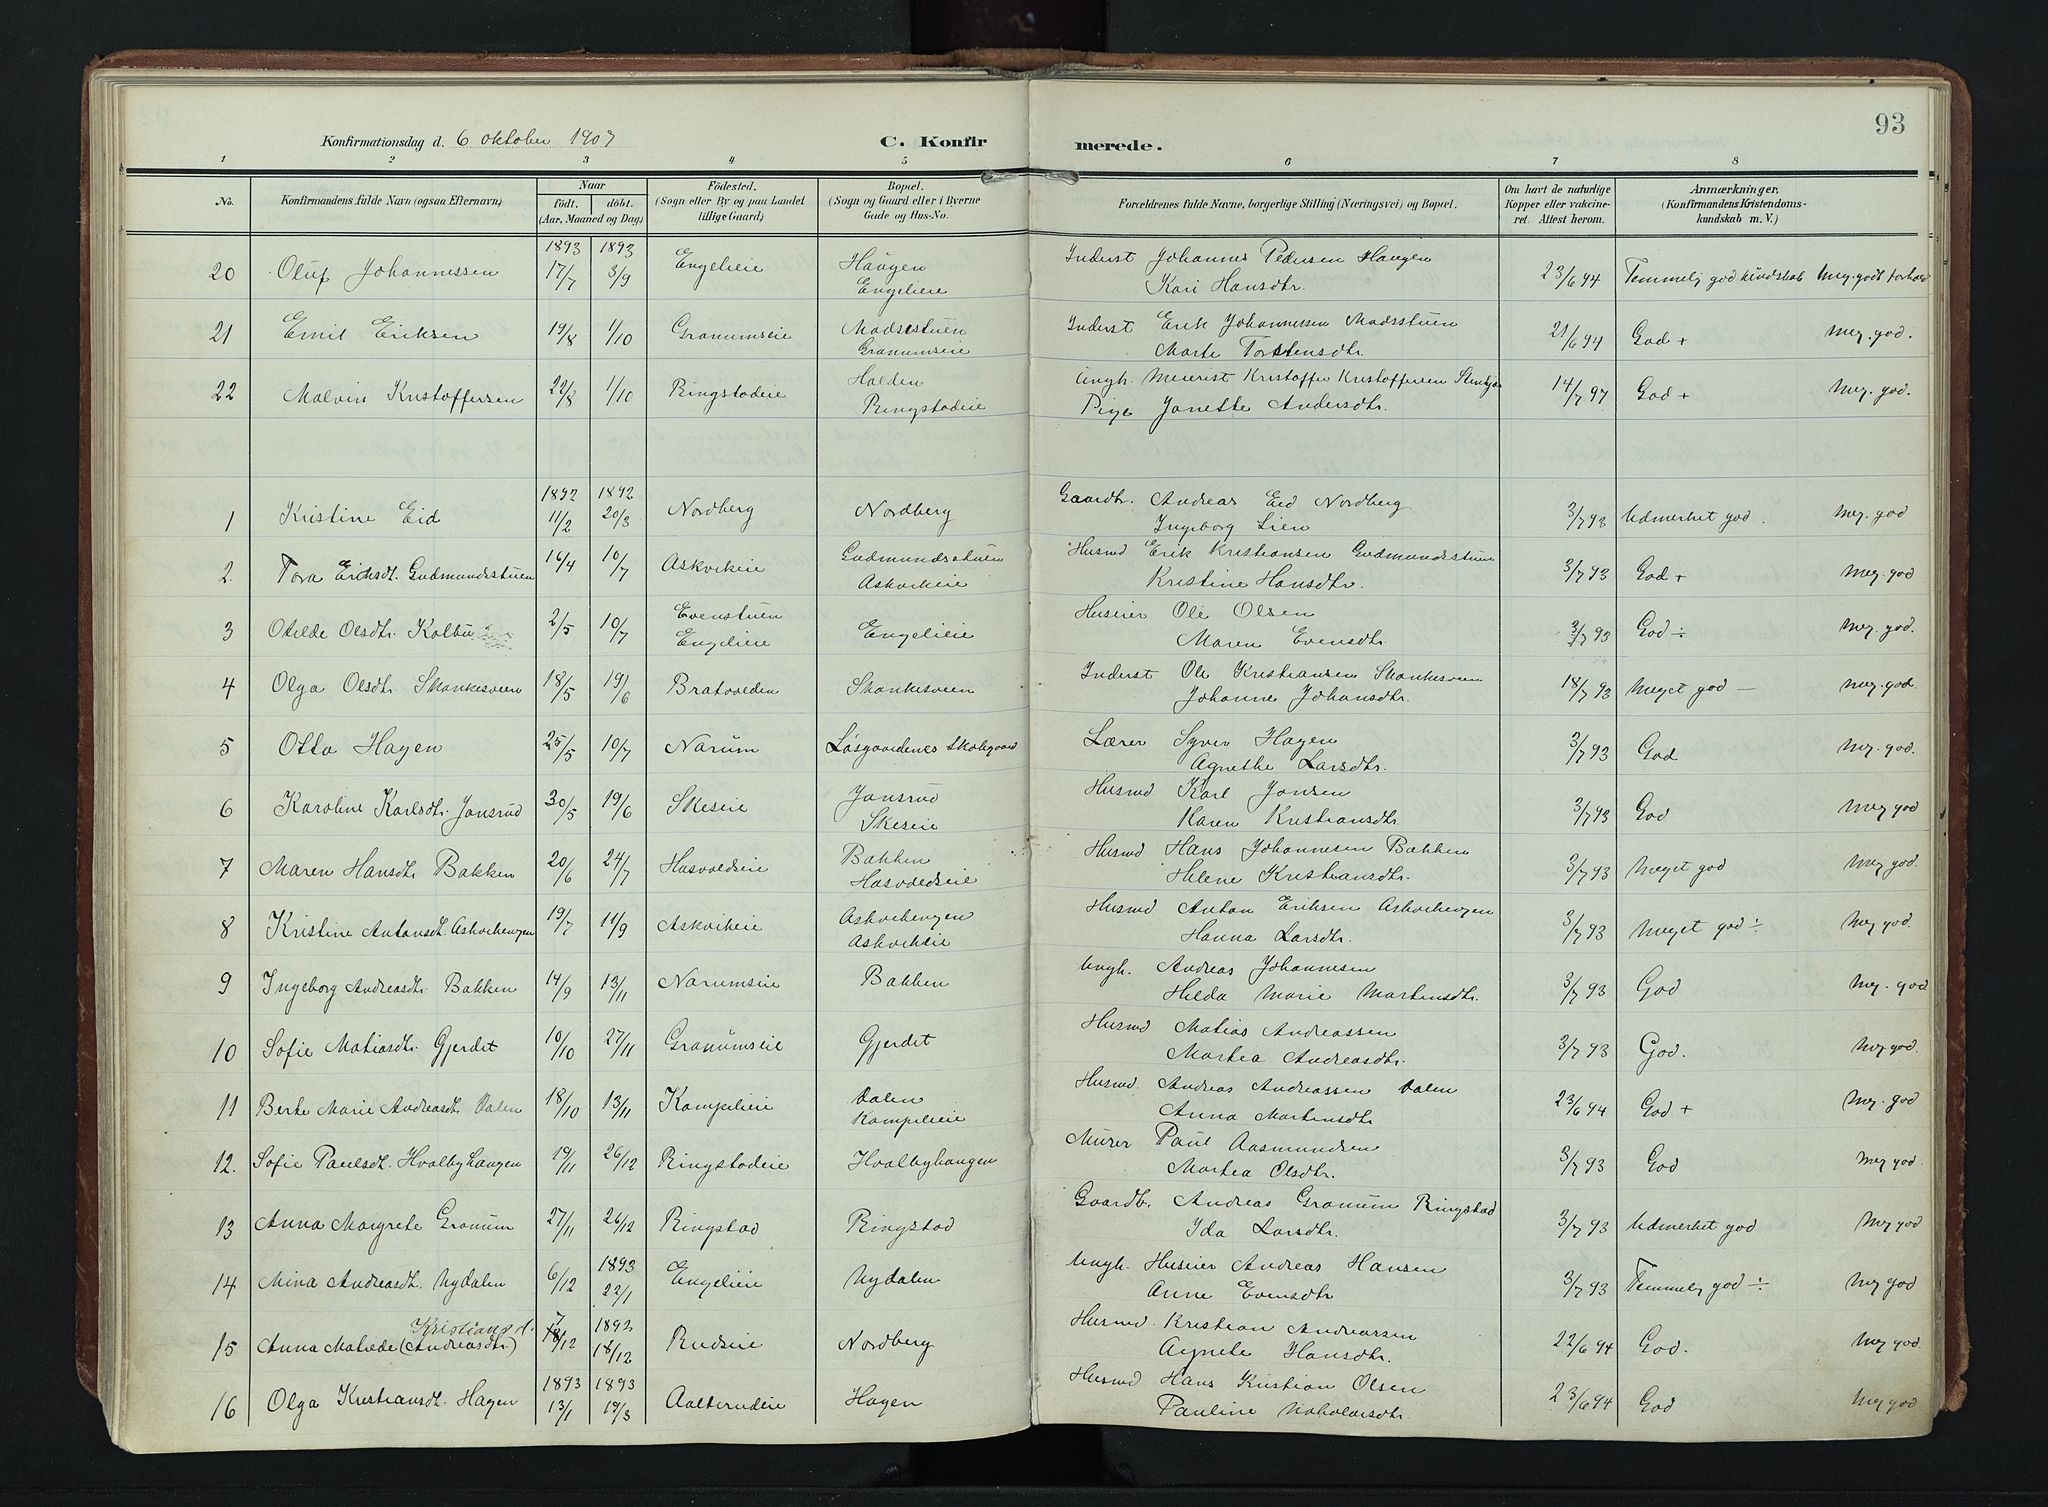 93
Konfirmationsdag d. 6 oktober 1907 C. Konfir merede.
1 2 3 4 5 6 7 8
No. Konfirmandens fulde Navn (ogsaa Efternavn) Naar født. døbt. (Aar, Maaned og Dag) Födested. (Sogn eller By og paa Landet tillige Gaard) Bopæl. (Sogn og Gaard eller i Byerne Gade og Hus-No. Forældrenes fulde Navne, borgerlige Stilling (Næringsvei) og Bopæl. Om havt de naturlige Kopper eller vakcineret. Attest herom. Anmærkninger. (Konfirmandens Kristendomskundskab m. V.)
1893 1893
20 Oluf Johannessen 17/7 3/9 Engelieie Haugen Engelieie Inderst Johannes Pedersen Haugen 23/6 94 Temmelig god kundskab Meg. godt forhold
Kari Hansdtr.
21 Emil Eriksen 19/8 1/10 Granumseie Madsstuen Granumseie Inderst Erik Johannessen Madsstuen 21/6 94 God + Meg. god.
Marte Torstensdtr.
22 Malvin Kristoffersen 22/8 1/10 Ringstadeie Halden Ringstadeie Ungk. Meierist Kristoffer Kristoffersen 14/7 97 God + Meg. god.
Pige Janette Andersdtr.
1892 1892
1 Kristine Eid 11/2 20/3 Nordberg Nordberg Gaardbr. Andreas Eid Nordberg 3/7 93 Udmerket god. Meg. god
Ingeborg Lien
2. Tora Eriksdt. Gudmundsstuen 16/4 10/7 Askvikeie Gudmundsstuen Askvikeie Husmd Erik Kristiansen Gudmundsstuen 3/7 93 God + Meg. god
Kristine Hansdtr.
3 Otilde Olsdtr. Kolbu 2/5 10/7 Evenstuen Engelieie Engelieie Huseier Ole Olsen 3/7 93 God ÷ Meg. god.
Maren Evensdtr.
4 Olga Olsdtr. Skankesveen 18/5 19/6 Bratvolden Skankesveen Inderst Ole Kristiansen Skankesveen 18/7 93 Meget god — Meg. god.
Johanne Johansdtr.
5 Otto Hagen 25/5 10/7 Narum Løsgaardenes Skolegaard Lærer Syver Hagen 3/7 93 God Meg. god.
Agnethe Larsdtr.
6 Karoline Karlsdtr. Jonsrud 30/5 19/6 Skeseie Jonsrud Skeseie Husmd Karl Jonsen 3/7 93 God Meg god
Karen Kristiansdtr.
7 Maren Hansdtr Bakken 20/6 24/7 Hasvoldseie Bakken Hasvoldseie Husmd Hans Johannesen Bakken 3/7 93 Meget god Meg god
Helene Kristiansdtr.
8 Kristine Antonsdt. Askvikengen 19/7 11/9 Askvikeie Askvikengen Askvikeie Husmd Anton Eriksen Askvikengen 3/7 93 Meget god ÷ Meg god.
Hanna Larsdtr.
9 Ingeborg Andreasdtr. Bakken 14/9 13/11 Narumseie Bakken Ungk. Andreas Johannesen 3/7 93 God Meg. god
Hilda Marie Martinsdtr.
10 Sofie Matiasdtr. Gjerdet 10/10 27/11 Granumseie Gjerdet Husmd Matias Andreassen 3/7 93 God. Meg god.
Martea Andreasdtr.
11 Berte Marie Andreasdt. Dalen 18/10 13/11 Kampelieie Dalen Kampelieie Husmd. Andreas Andreassen Dalen 23/6 94 God + Meg. god
Anna Martinsdtr
12. Sofie Paulsdt. Hvalbyhaugen 19/11 26/12 Ringstadeie Hvalbyhaugen Murer Paul Aasmundsen 3/7 93 God Meg god.
Martea Olsdtr.
13 Anna Margrete Granum 27/11 26/12 Ringstad Ringstad Gaardb. Andreas Granum Ringstad 3/7 93 Udmerket god Meg god
Ida Larsdtr.
1893
14 Mina Andreasdt. Nydalen 6/12 22/1 Engelieie Nydalen Ungk. Huseier Andreas Hansen 3/7 93 Temmelig god ÷ Meg god
Anne Evensdtr
Kristiansd. 1892
15 Anna Matilde (Andreasdtr.) 7/12 18/12 Rudseie Nordberg Husmd. Kristian Andreassen 22/6 94 God. Meg god
Agnete Hansdtr.
1893 1893
16 Olga Kristiansdt. Hagen 13/1 19/3 Hagen Husmd Hans Kristian Olsen 23/6 94 God Meg god
Pauline